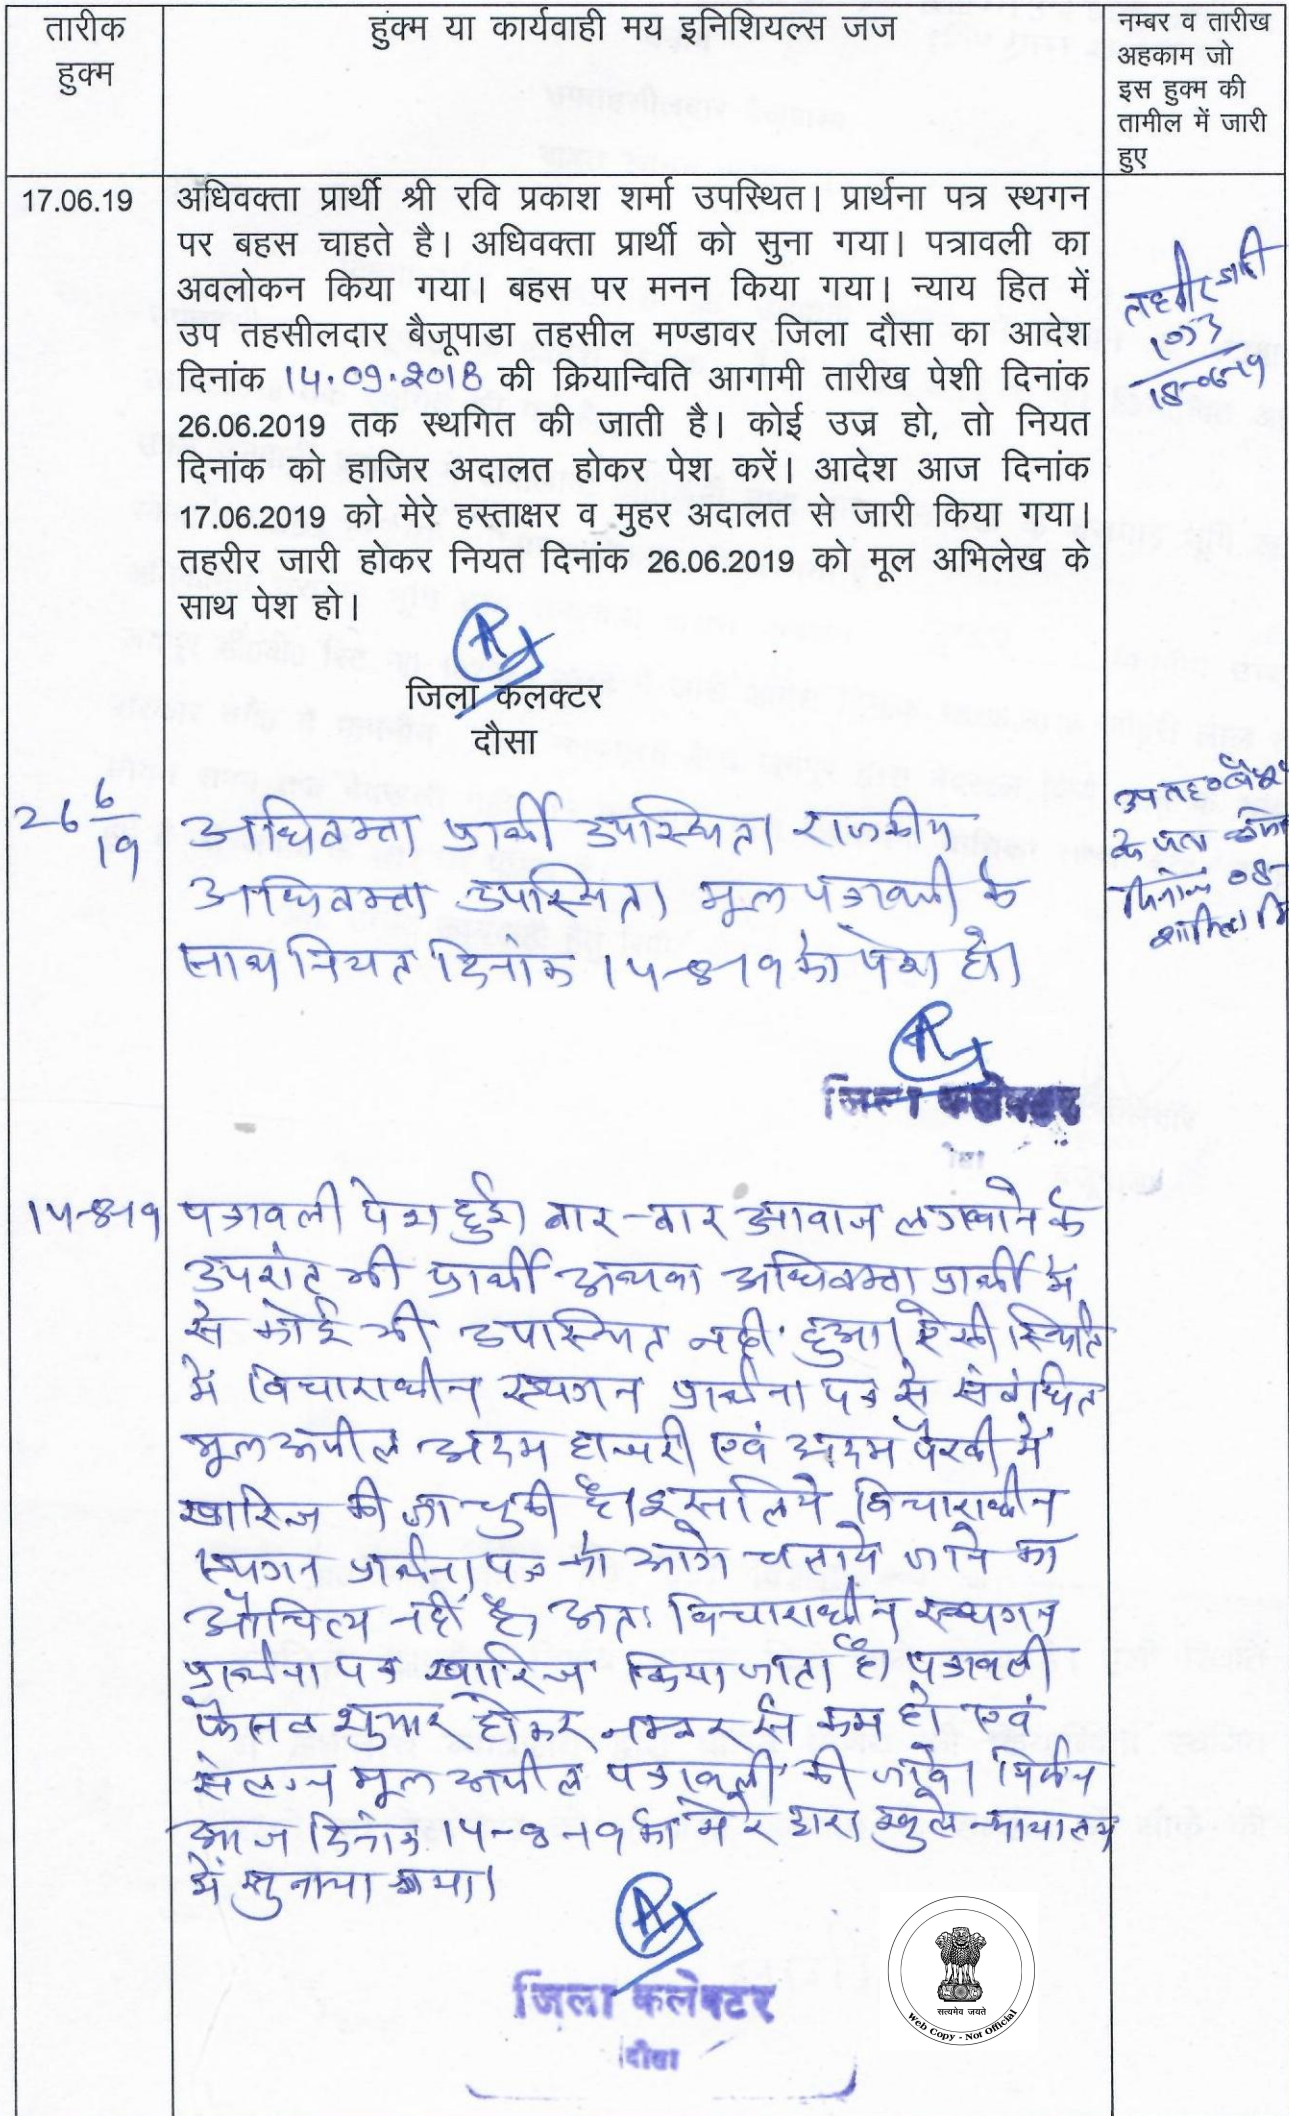 तारीक
हुक्म
हुक्म या कार्यवाही मय इनिशियल्स जज
नम्बर व तारीख
अहकाम जो
इस हुक्म की
तामील में जारी
हुए
17.06.19
अधिवक्ता प्रार्थी श्री रवि प्रकाश शर्मा उपस्थित। प्रार्थना पत्र स्थगन
पर बहस चाहते है। अधिवक्ता प्रार्थी को सुना गया। पत्रावली का
अवलोकन किया गया। बहस पर मनन किया गया। न्याय हित में
उप तहसीलदार बैजूपाडा तहसील मण्डावर जिला दौसा का आदेश
दिनांक 14.09.2018 की क्रियान्विति आगामी तारीख पेशी दिनांक
26.06.2019 तक स्थगित की जाती है। कोई उज्र हो, तो नियत
दिनांक को हाजिर अदालत होकर पेश करें। आदेश आज दिनांक
17.06.2019 को मेरे हस्ताक्षर व मुहर अदालत से जारी किया गया।
तहरीर जारी होकर नियत दिनांक 26.06.2019 को मूल अभिलेख के
साथ पेश हो।
जिला कलक्टर
दौसा
तहरीर जारी
1053
18-06-19
26 6/19
अधिवक्ता प्रार्थी उपस्थित। राजकीय
अधिवक्ता उपस्थित। मूल पत्रावली के
साथ नियत दिनांक 14-8-19 को पेश हो।
उप तह०
के
दिनांक 08-
शामिल
जिला कलेक्टर
14-8-19
पत्रावली पेश हुई। बार-बार आवाज लगवाने के
उपरांत भी प्रार्थी अथवा अधिवक्ता प्रार्थी में
से कोई भी उपस्थित नहीं हुआ। ऐसी स्थिति
में विचाराधीन स्थगन प्रार्थना पत्र से संबंधित
मूल अपील अदम हाजरी एवं अदम पैरवी में
खारिज की जा चुकी है। इसलिये विचाराधीन
स्थगन प्रार्थना पत्र को आगे चलाये जाने का
औचित्य नहीं है। अतः विचाराधीन स्थगन
प्रार्थना पत्र खारिज किया जाता है। पत्रावली
फैसल शुमार होकर नम्बर से कम हो एवं
संलग्न मूल अपील पत्रावली की जावे। निर्णय
आज दिनांक 14-8-19 को मेरे द्वारा खुले न्यायालय
में सुनाया गया।
जिला कलेक्टर
दौसा
सत्यमेव जयते
Web Copy - Not Official